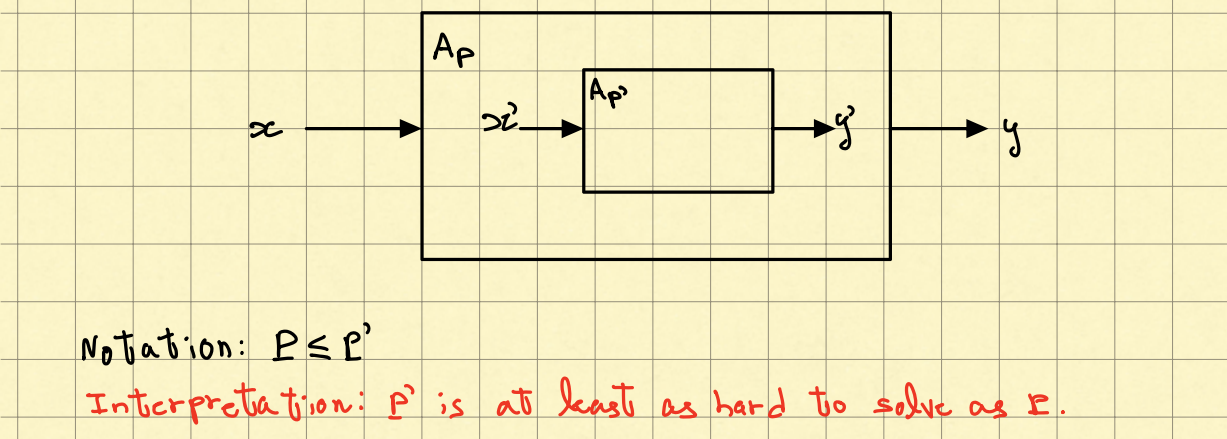 A_P
A_P'
x
x'
y'
y
Notation: P ≤ P'
Interpretation: P' is at least as hard to solve as P.